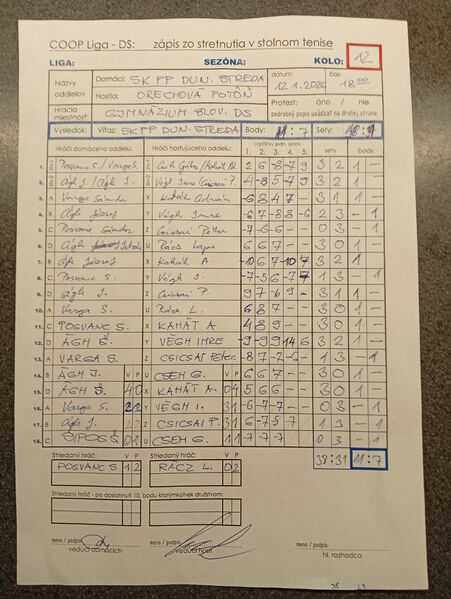 COOP Liga - DS: zápis zo stretnutia v stolnom tenise
LIGA: SEZÓNA: KOLO: 12
Názvy oddielov Domáci: SK PP DUN. STREDA dátum: 12.1.2026 čas: 18 00
Hostia: ORECHOVÁ POTÔŇ Protest: áno / nie
Hracia miestnosť: GYMNÁZIUM SLOV. DS podrobný popis uvádzať na druhej strane
Výsledok: Víťaz: SK PP DUN. STREDA Body: 11 : 7 Sety:
Hráči domáceho oddielu: Hráči hosťujúceho oddielu: Loptičky jedn. setov sety: body:
1. 2. 3. 4. 5.
1. Posvanc S./Varga S. 2 6 -8 -7 9 3 2 1 -
2. Ágh J./Ágh Š. -4 -8 5 7 9 3 2 1 -
3. A Varga Sándor X Kahát Adrián
4. B Ágh József Y Végh Imre -6 7 -8 8 -6 2 3 - 1
5. C Posvanc Sándor Z Csicsai Péter -7 -6 -6 - - 0 3 - 1
6. D U Rácz Lajos 6 6 7 - - 3 0 1 -
7. B Ágh József X Kahát A.
8. C Posvanc S. Y Végh I. -7 -5 6 -7 1 3 - 1
9. D Z Csicsai P. 3 1 1 -
10. A Varga S. U Rácz L. 6 8 7 - - 3 0 1 -
11. C POSVANC S. X KAHÁT A 4 8 9 - - 3 0 1 -
12. D ÁGH Š. Y VÉGH IMRE -9 -9 9 14 6 3 2 1 -
13. A VARGA S. Z CSICSAI Péter. -8 7 -2 -6 - 1 3 - 1
14. B ÁGH J. V P U CSEH G. V P 6 6 7 - - 3 0 1 -
15. D ÁGH Š. 4 0 X KAHÁT A. 0 4 5 6 6 - - 3 0 1 -
16. A Varga S. 2 2 Y VÉGH I. 3 1 -6 -7 -7 - - 0 3 - 1
17. B Ágh J. Z CSICSAI P. 3 1
18. C SIPOS Š. 0 1 U CSEH G. 1 1 -7 -7 -7 0 3 - 1
Striedaný hráč: V P Striedaný hráč: V P 38:31 11:7
POSVANC S 1 2 RÁCZ L. 0 2
Striedaný hráč - po dosiahnutí 10. bodu ktorýmkoľvek družstvom:
meno / podpis meno / podpis meno / podpis
vedúci domácich vedúci hostí hl. rozhodca